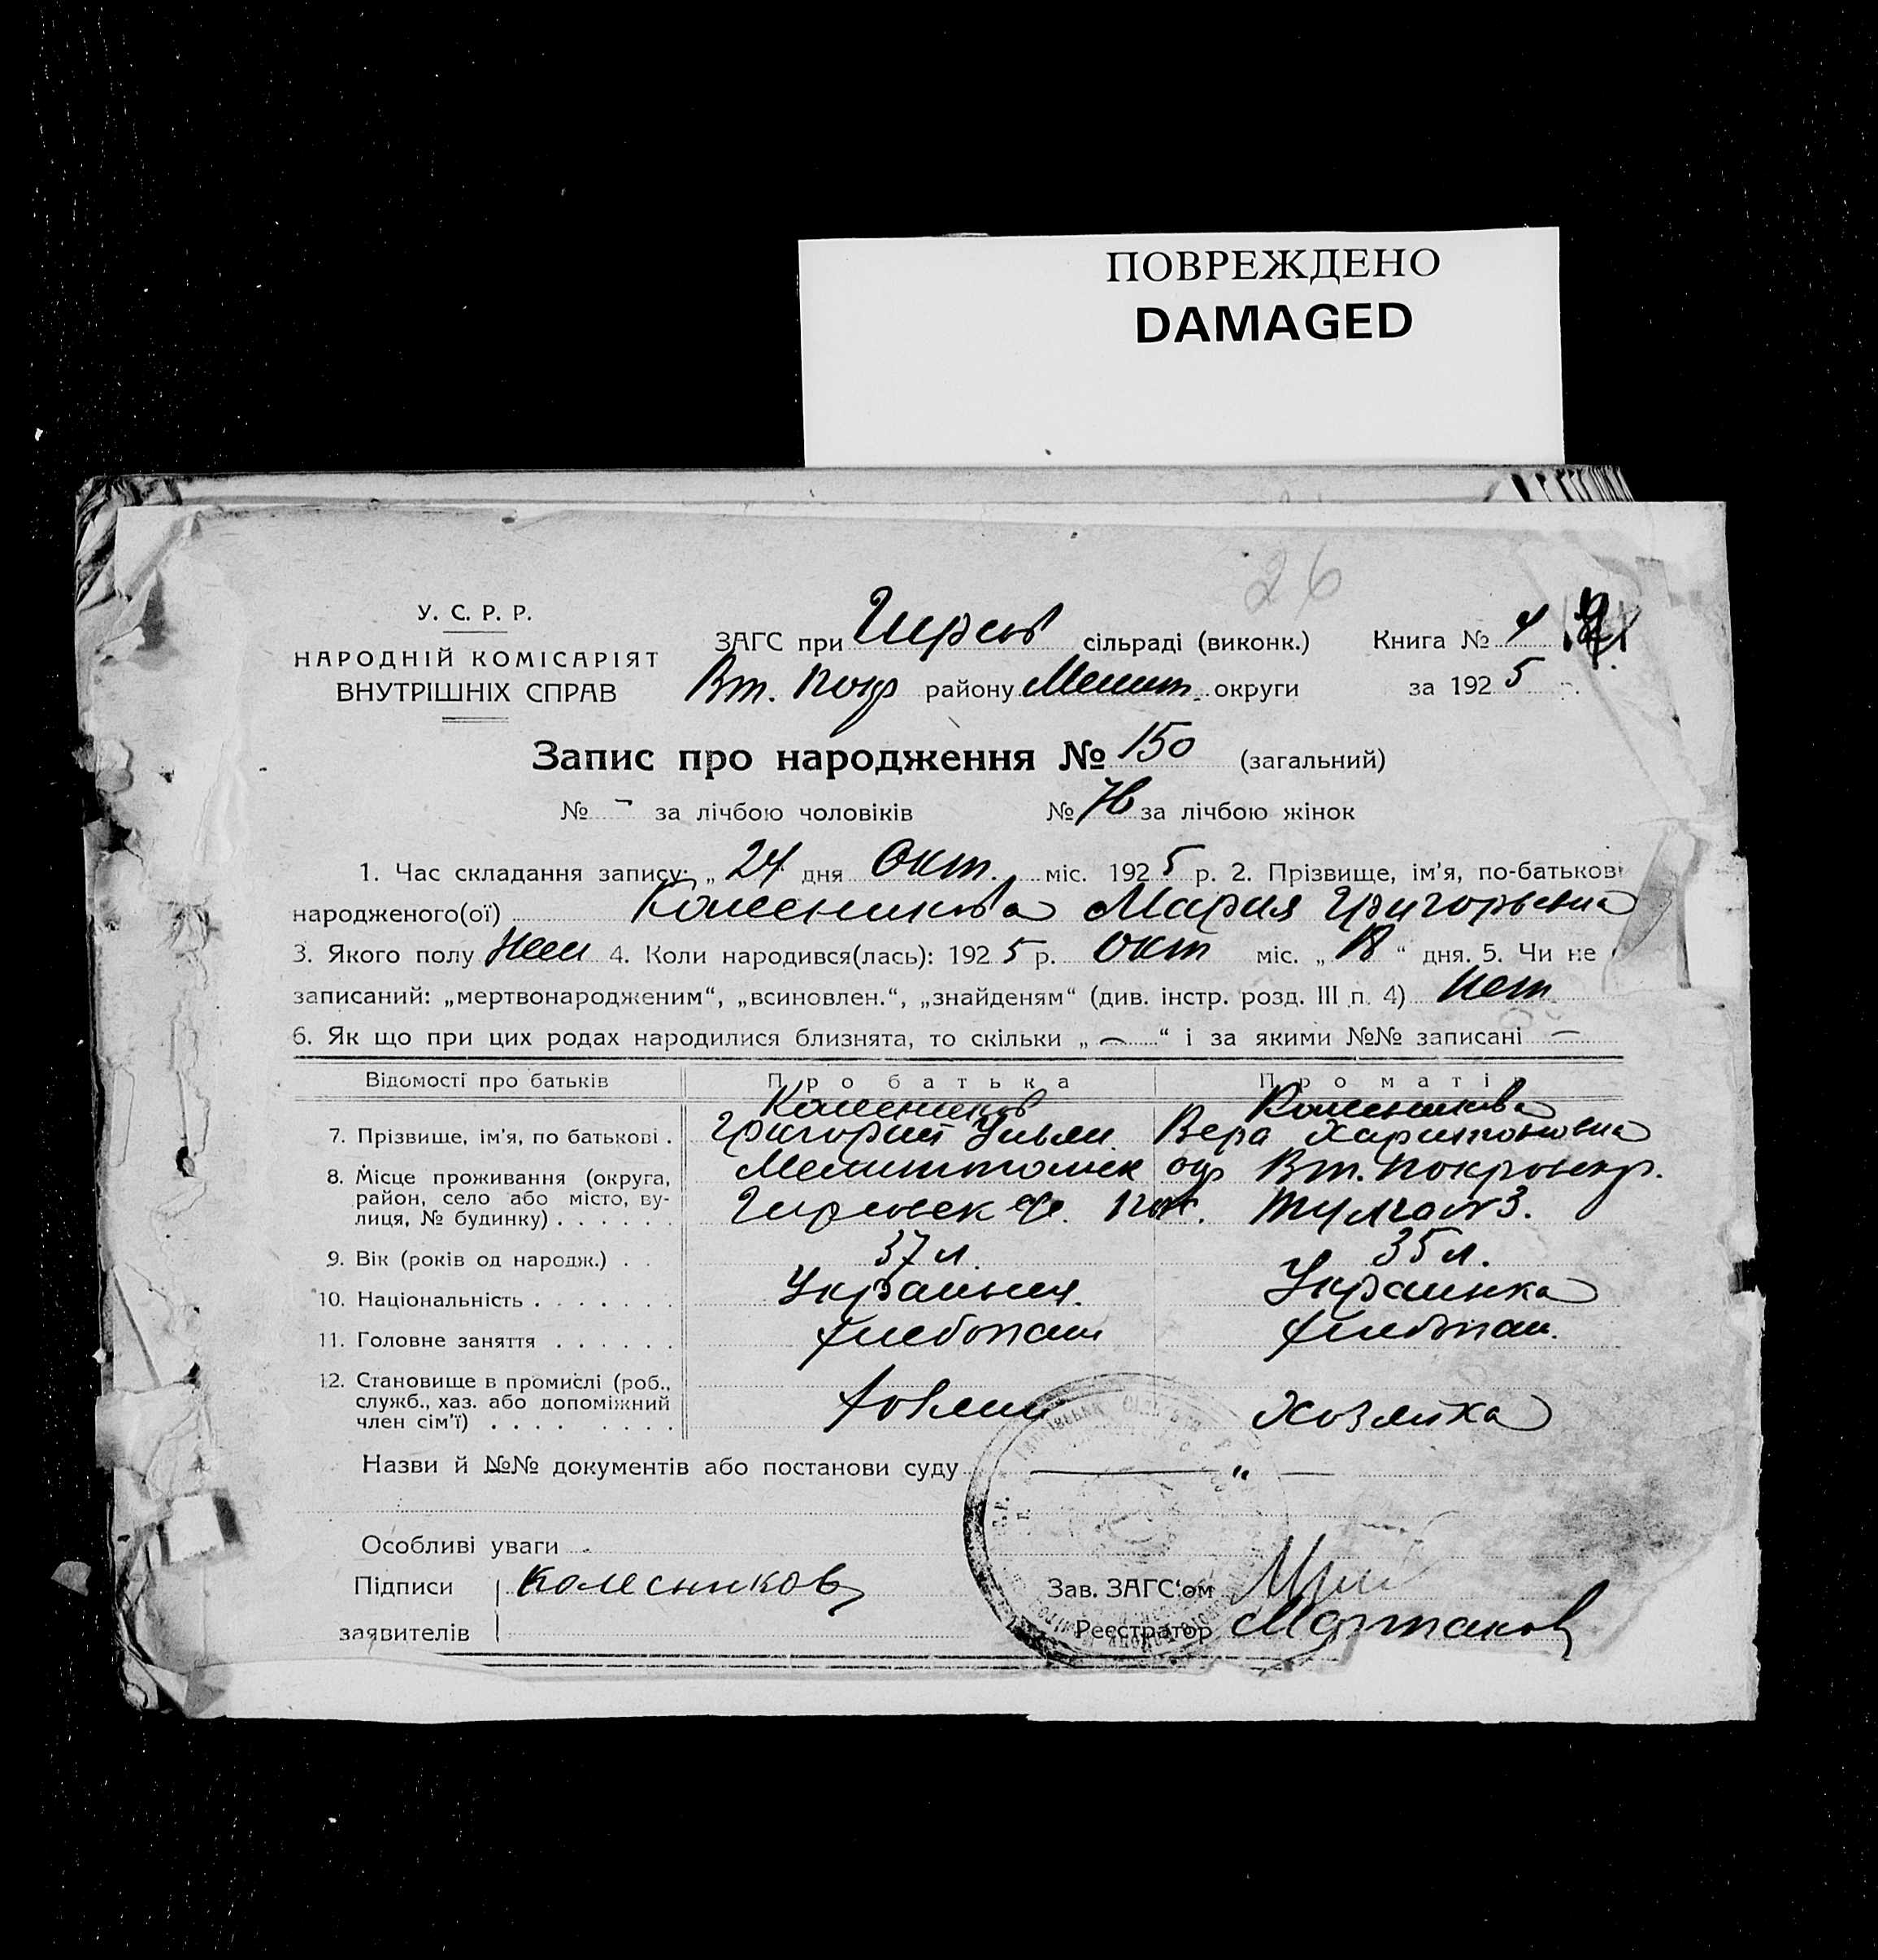 ПОВРЕЖДЕНО
DAMAGED
26
У. С. Р. Р.
НАРОДНІЙ КОМІСАРІЯТ
ВНУТРІШНІХ СПРАВ
ЗАГС при Гирсов сільраді (виконк.) Книга № 4
Вт. Покр району Мелит. округи за 1925 р.
Запис про народження № 150 (загальний)
№ - за лічбою чоловіків № 76 за лічбою жінок
1. Час складання запису: „ 24 дня Окт. міс. 1925 р. 2. Прізвище, ім'я, по-батькові
народженого(ої) Колесникова Мария Григорьевна
3. Якого полу Жен 4. Коли народився(лась): 1925 р. окт міс. „ 18 “ дня. 5. Чи не
записаний: „мертвонародженим“, „всиновлен.“, „знайденям“ (див. інстр. розд. III п. 4) нет
6. Як що при цих родах народилися близнята, то скільки „ — “ і за якими №№ записані —
Відомості про батьків Про батька Про матір
Колесников Колесникова
7. Прізвище, ім'я, по батькові . Григорий Вера Харитоновна
8. Місце проживання (округа, Мелитопольск окр Вт. Покровск р.
район, село або місто, ву-
лиця, № будинку) . . . . . .
9. Вік (років од народж.) . . 37 л. 35 л.
10. Національність . . . . . . . Украинец. Украинка
11. Головне заняття . . . . . . хлебопаш хлебопаш.
12. Становище в промислі (роб.,
служб., хаз. або допоміжний хозяин хозяйка
член сім'ї) . . . . . . . .
Назви й №№ документів або постанови суду — „ —
Особливі уваги
Підписи Колесников Зав. ЗАГС'ом
заявителів Реєстратор